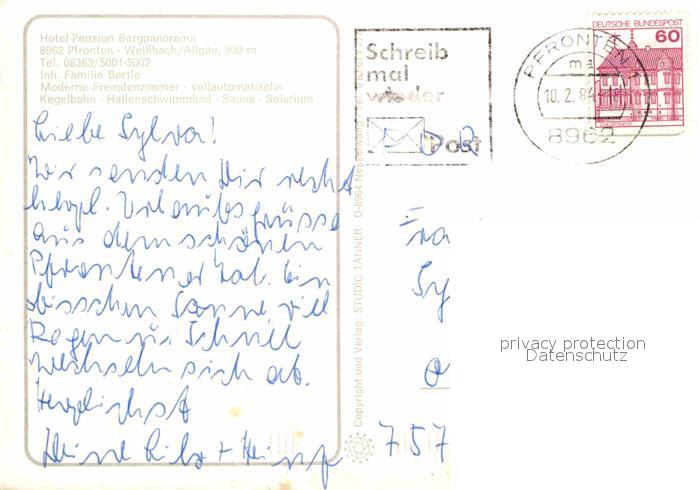 Hotel-Pension Bergpanorama
8962 Pfronten - Weißbach/Allgäu, 900 m
Tel. 08363/5001-5002
Inh. Familie Bertle
Moderne Fremdenzimmer - vollautomatische
Kegelbahn - Hallenschwimmbad - Sauna - Solarium
Liebe Sylva!
Wir senden Dir recht
herzl. Urlaubsgrüsse
aus dem schönen
Pfrontener Tal. Ein
bisschen Sonne, viel
Regen u. Schnee
wechseln sich ab.
Herzlichst
Deine + Heinz
Copyright und Verlag: STUDIO TANNER D-8964 Nesselwang
Schreib
mal
wieder
Post
PFRONTEN 1
ma
10.2.84-18
8962
DEUTSCHE BUNDESPOST
60
Fra
Sy
757
privacy protection
Datenschutz